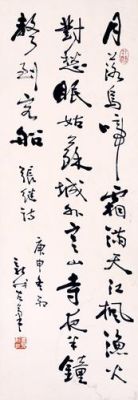 月落烏啼霜滿天江楓漁火
對愁眠姑蘇城外寒山寺夜半鐘
聲到客船
張繼詩
庚申冬